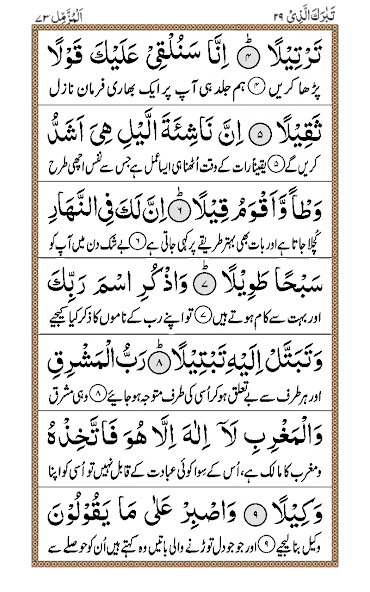 تَبٰرَكَ الَّذِیْ ٢٩
اَلْمُزَّمِّل ٧٣
تَرْتِیْلًا ؕ﴿۴﴾ اِنَّا سَنُلْقِیْ عَلَیْكَ قَوْلًا
پڑھا کریں ﴿۴﴾ ہم جلد ہی آپ پر ایک بھاری فرمان نازل
ثَقِیْلًا ﴿۵﴾ اِنَّ نَاشِئَةَ الَّیْلِ هِیَ اَشَدُّ
کریں گے ﴿۵﴾ یقیناً رات کے وقت اُٹھنا ہی ایسا عمل ہے جس سے نفس اچھی طرح
وَطْاً وَّ اَقْوَمُ قِیْلًا ؕ﴿۶﴾ اِنَّ لَكَ فِی النَّهَارِ
کچلا جاتا ہے اور بات بھی بہتر طریقے پر کہی جاتی ہے ﴿۶﴾ بے شک دن میں آپ کو
سَبْحًا طَوِیْلًا ؕ﴿۷﴾ وَاذْكُرِ اسْمَ رَبِّكَ
اور بہت سے کام ہوتے ہیں ﴿۷﴾ تو اپنے رب کے ناموں کا ذکر کیا کیجیے
وَ تَبَتَّلْ اِلَیْهِ تَبْتِیْلًا ؕ﴿۸﴾ رَبُّ الْمَشْرِقِ
اور ہر طرف سے بے تعلق ہو کر اُسی کی طرف متوجہ ہو جائیے ﴿۸﴾ وہی مشرق
وَ الْمَغْرِبِ لَاۤ اِلٰهَ اِلَّا هُوَ فَاتَّخِذْهُ
و مغرب کا مالک ہے، اُس کے سوا کوئی عبادت کے قابل نہیں تو اُسی کو اپنا
وَكِیْلًا ﴿۹﴾ وَاصْبِرْ عَلٰی مَا یَقُوْلُوْنَ
وکیل بنا لیجیے ﴿۹﴾ اور جو جو دل توڑنے والی باتیں وہ کہتے ہیں اُن کو حوصلے سے